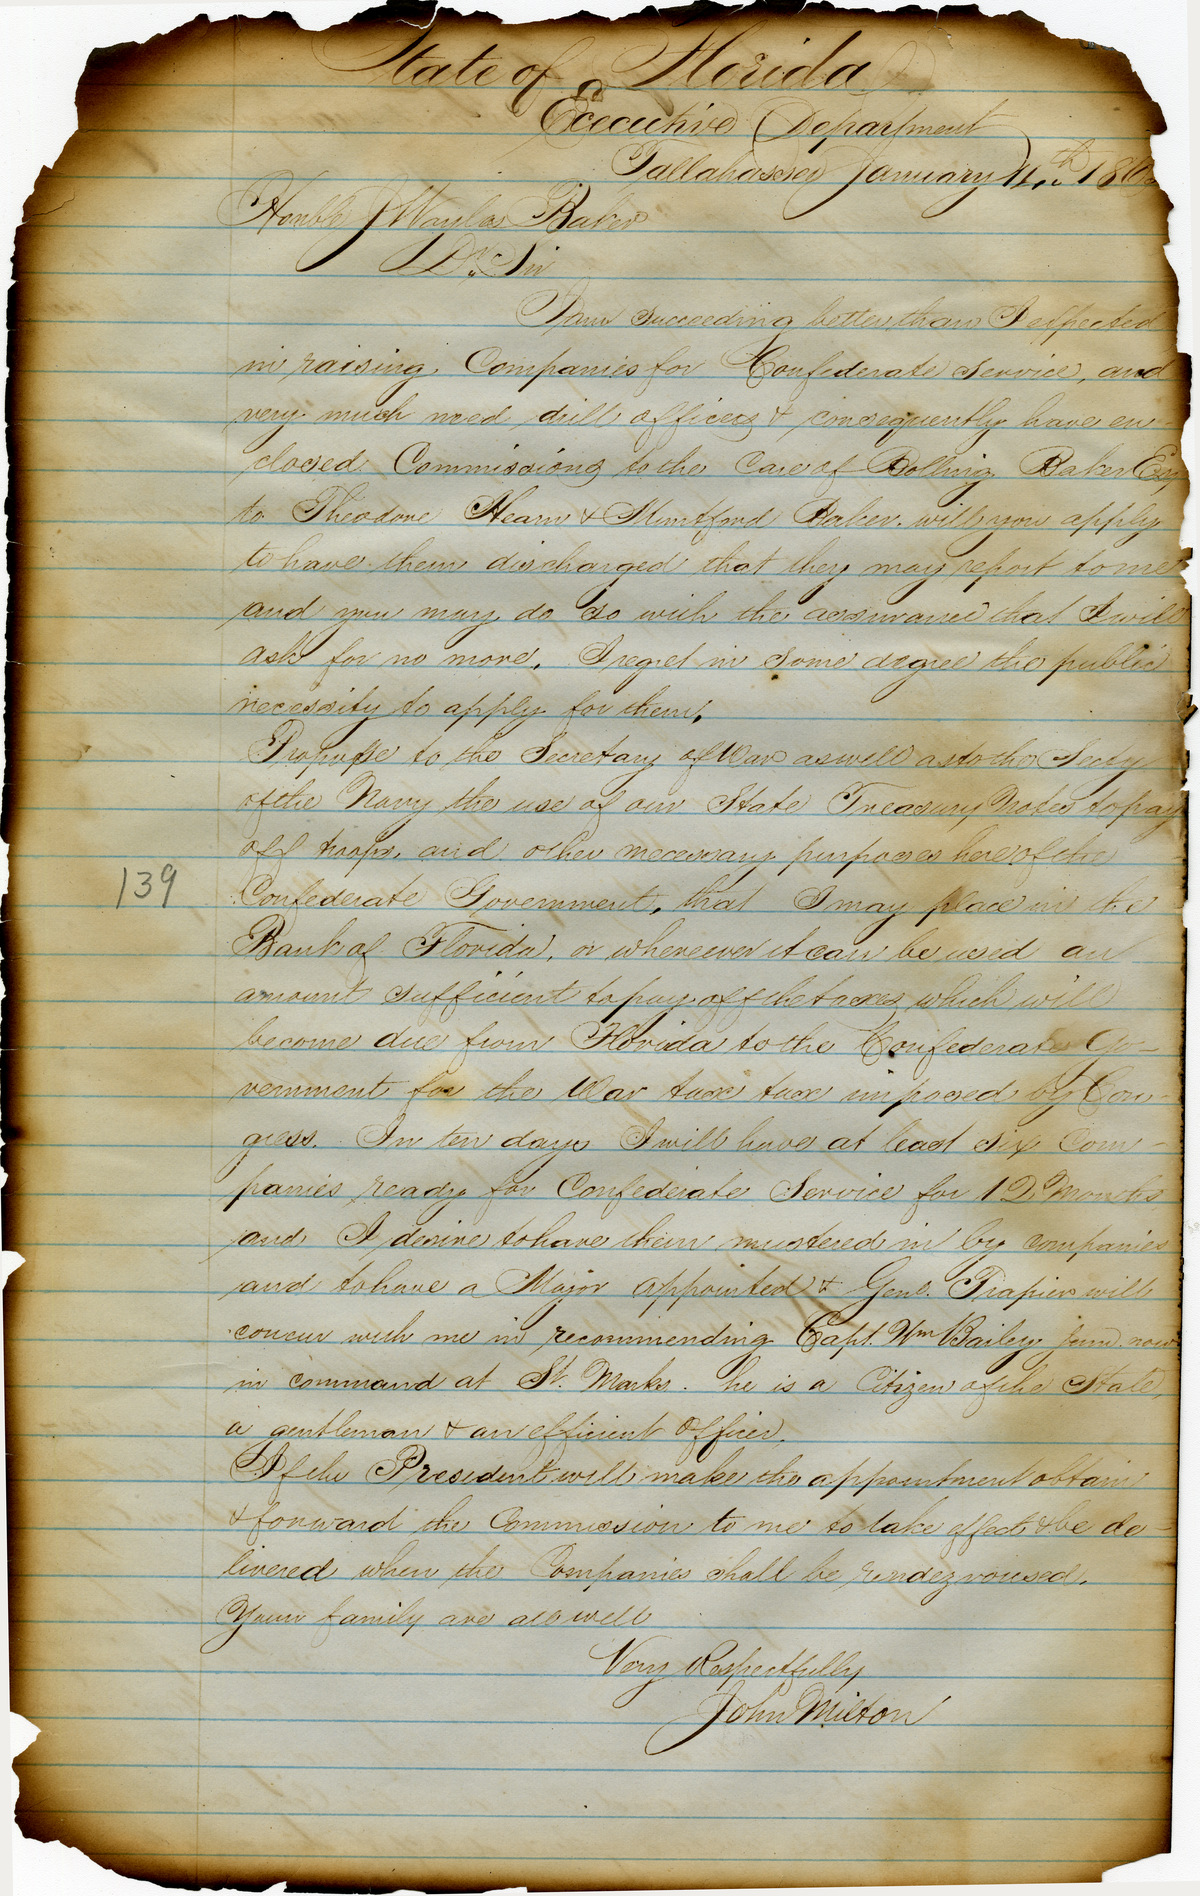 State of Florida
Executive Department
Tallahassee January 14th 186
Honble J Wayles Baker
Dr. Sir
I am succeeding better than I expected
in raising Companies for Confederate Service, and
very much need drill officers & consequently have en-
closed Commissions to the Care of Bolling Baker Esq
to Theodore Hearn & Muntford Baker. will you apply
to have them discharged that they may report to me
and you may do so with the assurance that I will
ask for no more. I regret in some degree the public
necessity to apply for them.
Propose to the Secretary of War as well as to the Secty
of the Navy the use of our State Treasury Notes to pay
off troops, and other necessary purposes here of the
Confederate Government, that I may place in the
Bank of Florida, or whereever it can be used an
amount sufficient to pay off the taxes, which will
become due from Florida to the Confederate Go-
vernment for the War taxe taxe imposed by Con-
gress. In ten days I will have at least six Com-
panies ready for Confederate Service for 12 Months
and I desire to have them mustered in by companies
and to have a Major appointed & Genl. Trapier will
concur with me in recommending Capt. Wm Bailey junr. now
in command at St. Marks. he is a Citizen of the State,
a gentleman & an efficient Officer.
If the President will make the appointment obtain
& forward the Commission to me to take effect, & be de-
livered when the Companies shall be rendezvoused.
Your family are all well
Very Respectfully
John Milton
139